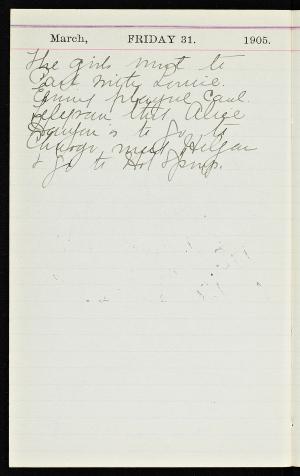 March, FRIDAY 31. 1905.
The girls went to
East with Louise.
Emmy played Carl.
telegram that Alice
is to go to
Chicago meet Helfan
& go to Hot Springs.